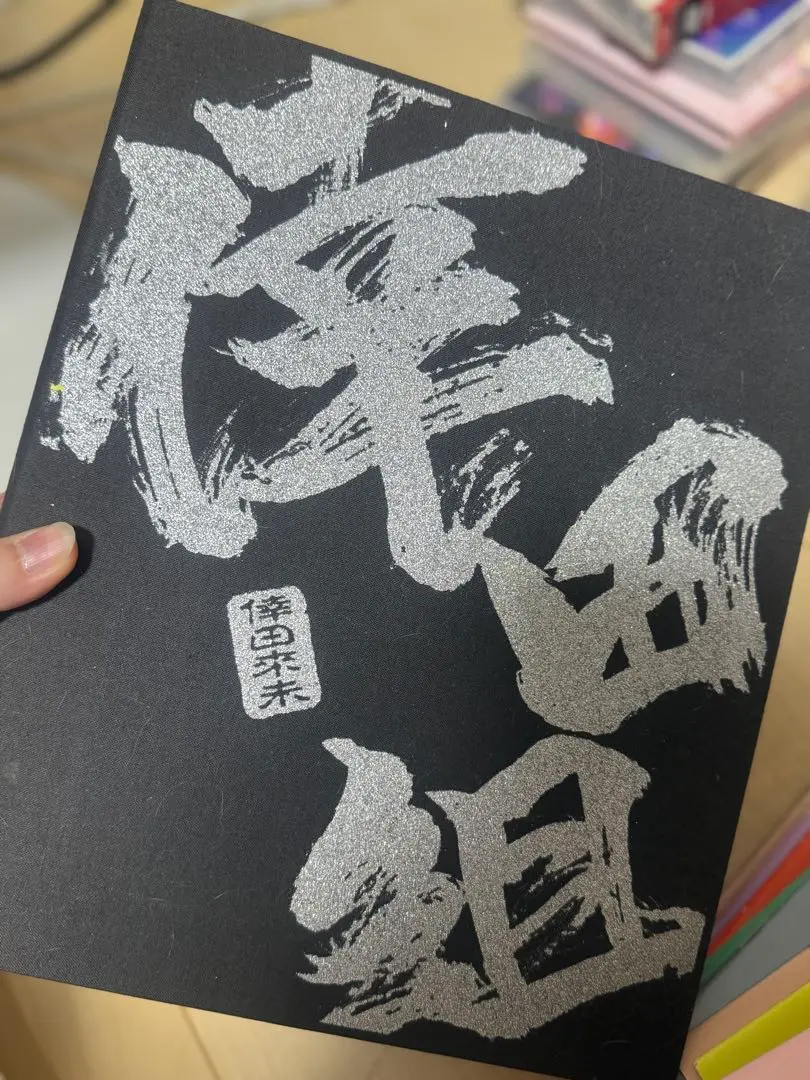 倖田組
倖田來未